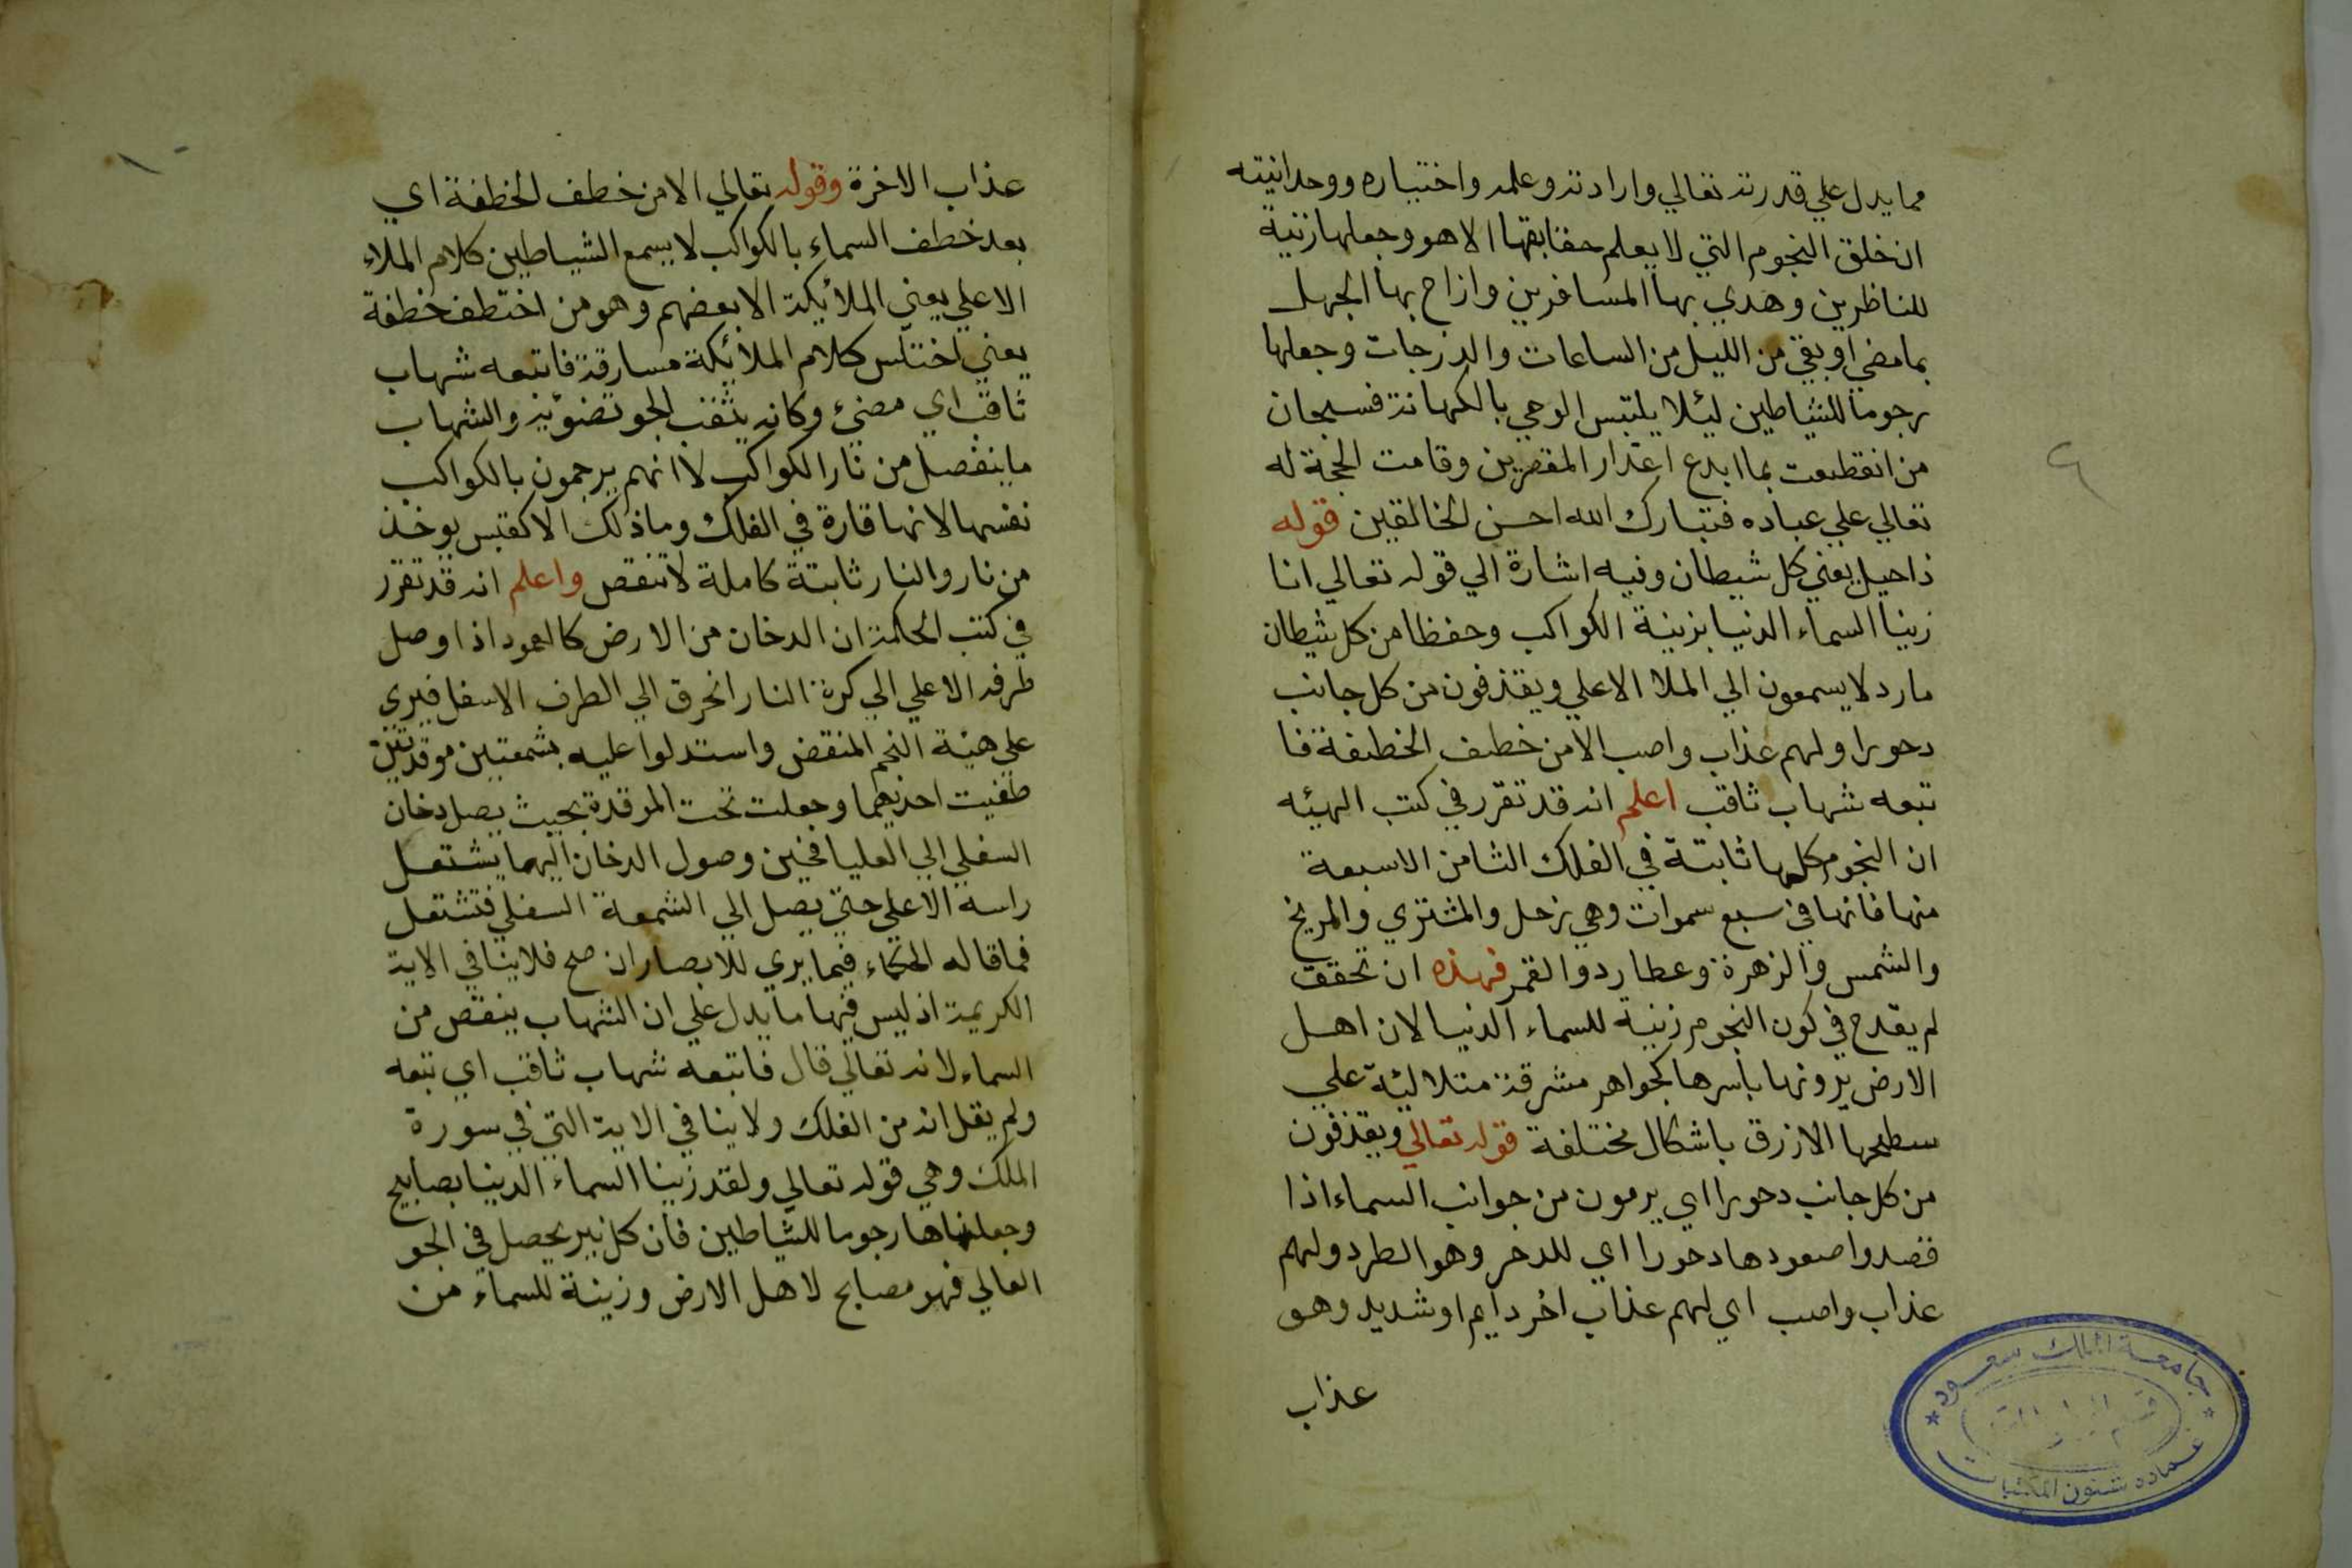 مما يدل علي قدرته تعالي وارادته وعلمه واختياره ووحدانيته
ان خلق النجوم التي لا يعلم حقايقها الا هو وجعلها زينة
للناظرين وهدي بها المسافرين وازاح بها الجهل
بما مضي او بقي من الليل من الساعات والدرجات وجعلها
رجوما للشياطين ليئلا يلتبس الوحي بالكهانة فسبحان
من انقطعت بما ابدع اعذار المقصرين وقامت الحجة له
تعالي علي عباده فتبارك الله احسن الخالقين قوله
ذا حيل يعني كل شيطان وفيه اشارة الي قوله تعالي انا
زينا السماء الدنيا بزينة الكواكب وحفظا من كل شيطان
مارد لا يسمعون الي الملا الاعلي ويقذفون من كل جانب
دحورا ولهم عذاب واصب الا من خطف الخطفة فا
تبعه شهاب ثاقب اعلم انه قد تقرر في كتب الهيئه
ان النجوم كلها ثابتة في الفلك الثامن الا سبعة
منها فانها في سبع سموات وهي زحل والمشتري والمريخ
والشمس والزهرة وعطارد والقمر فهذه ان تحقق
لم يقدح في كون النجوم زينة للسماء الدنيا لان اهل
الارض يرونها باسرها كجواهر مشرقة متلالئة علي
سطحها الازرق باشكال مختلفة قوله تعالي ويقذفون
من كل جانب دحورا اي يرمون من جوانب السماء اذا
قصدوا صعودها دحورا اي للدحر وهو الطرد ولهم
عذاب واصب اي لهم عذاب اخر دايم او شديد وهو
عذاب
جامعة الملك سعود
عمادة شئون المكتبات
عذاب الاخرة وقوله تعالي الا من خطف الخطفة اي
بعد خطف السماء بالكواكب لا يسمع الشياطين كلام الملاء
الاعلي يعني الملائيكة الا بعضهم وهو من اختطف خطفة
يعني اختلس كلام الملائكة مسارقة فاتبعه شهاب
ثاقب اي مضيء وكانه يثقب الجو بضوئه والشهاب
ما ينفصل من نار الكواكب لا انهم يرجمون بالكواكب
نفسها لانها قارة في الفلك وما ذلك الا كقبس يوخذ
من نار والنار ثابتة كاملة لا تنقص واعلم انه قد تقرر
في كتب الحكمة ان الدخان من الارض كالعمود اذا وصل
طرفه الاعلي الي كرة النار انحرق الي الطرف الاسفل فيري
علي هيئة النجم المنقض واستدلوا عليه بشمعتين موقدتين
طفيت احديهما وجعلت تحت الموقدة بحيث يصل دخان
السفلي الي العليا فحين وصول الدخان اليهما يشتعل
راسه الاعلي حتي يصل الي الشمعة السفلي فتشتعل
فما قاله الحكماء فيما يري للابصار ان صح فلا ينافي الاية
الكريمة اذ ليس فيها ما يدل علي ان الشهاب ينقص من
السماء لانه تعالي قال فاتبعه شهاب ثاقب اي تبعه
ولم يقل انه من الفلك ولا ينافي الاية التي في سورة
الملك وهي قوله تعالي ولقد زينا السماء الدنيا بصابيح
وجعلناها رجوما للشياطين فان كل نير يحصل في الجو
العالي فهو مصابح لاهل الارض وزينة للسماء من